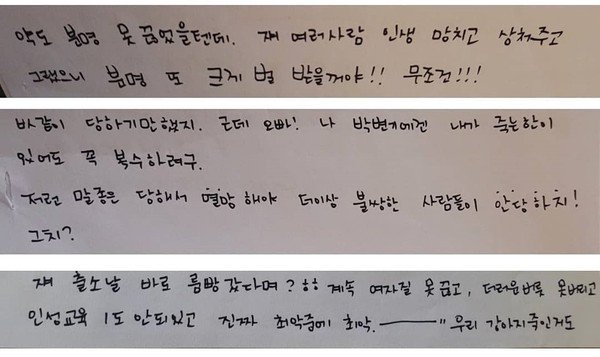 약도 분명 못끊었을텐데. 쟤 여러사람 인생 망치고 상처주고
그랬으니 분명 또 크게 벌 받을꺼야!! 무조건!!!
바같이 당하기만했지. 근데 오빠! 나 박변기에겐 내가 죽는한이
있어도 꼭 복수하려구.
저런 말종은 당해서 멸망해야 더이상 불쌍한 사람들이 안당하지!
그치?
쟤 출소날 바로 룸빵갔다며? ㅎㅎ 계속 여자질 못끊고, 더러운버릇 못버리고
인성교육 1도 안되있고 진짜 최악중에 최악. "우리 강아지죽인거도